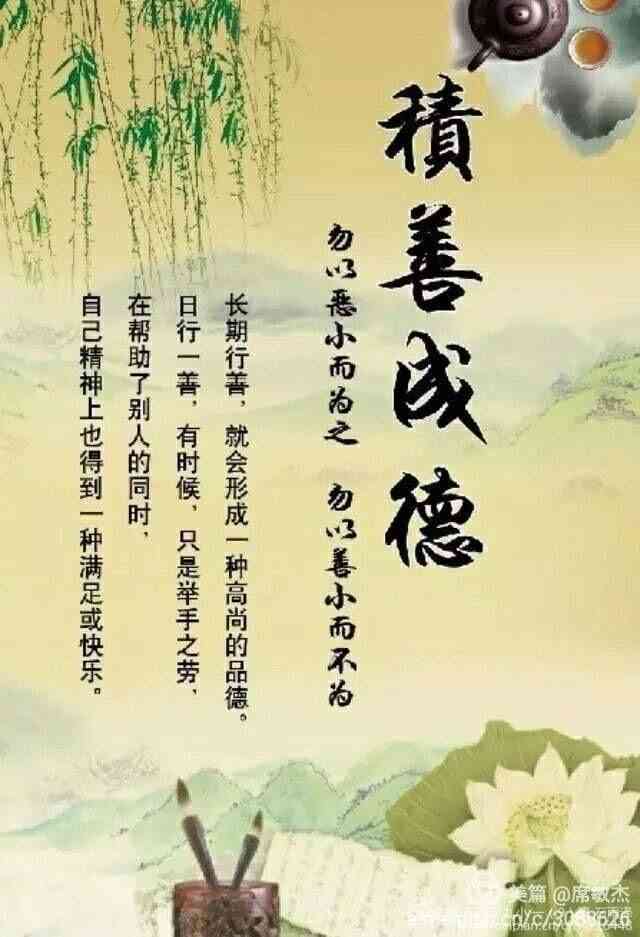 積善成德
勿以惡小而为之 勿以善小而不为
长期行善，就会形成一种高尚的品德。
日行一善，有时候，只是举手之劳，
在帮助了别人的同时，
自己精神上也得到一种满足或快乐。
美篇 @席敏杰